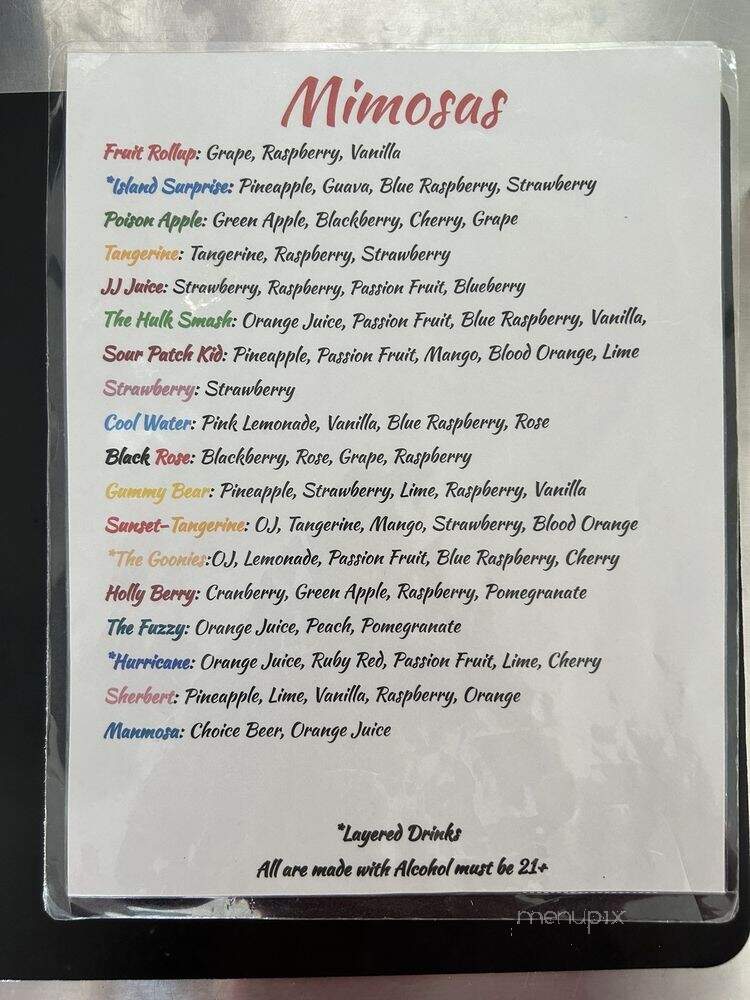 Mimosas
Fruit Rollup: Grape, Raspberry, Vanilla
*Island Surprise: Pineapple, Guava, Blue Raspberry, Strawberry
Poison Apple: Green Apple, Blackberry, Cherry, Grape
Tangerine: Tangerine, Raspberry, Strawberry
JJ Juice: Strawberry, Raspberry, Passion Fruit, Blueberry
The Hulk Smash: Orange Juice, Passion Fruit, Blue Raspberry, Vanilla,
Sour Patch Kid: Pineapple, Passion Fruit, Mango, Blood Orange, Lime
Strawberry: Strawberry
Cool Water: Pink Lemonade, Vanilla, Blue Raspberry, Rose
Black Rose: Blackberry, Rose, Grape, Raspberry
Gummy Bear: Pineapple, Strawberry, Lime, Raspberry, Vanilla
Sunset-Tangerine: OJ, Tangerine, Mango, Strawberry, Blood Orange
*The Goonies:OJ, Lemonade, Passion Fruit, Blue Raspberry, Cherry
Holly Berry: Cranberry, Green Apple, Raspberry, Pomegranate
The Fuzzy: Orange Juice, Peach, Pomegranate
*Hurricane: Orange Juice, Ruby Red, Passion Fruit, Lime, Cherry
Sherbert: Pineapple, Lime, Vanilla, Raspberry, Orange
Manmosa: Choice Beer, Orange Juice
*Layered Drinks
All are made with Alcohol must be 21+
menupix